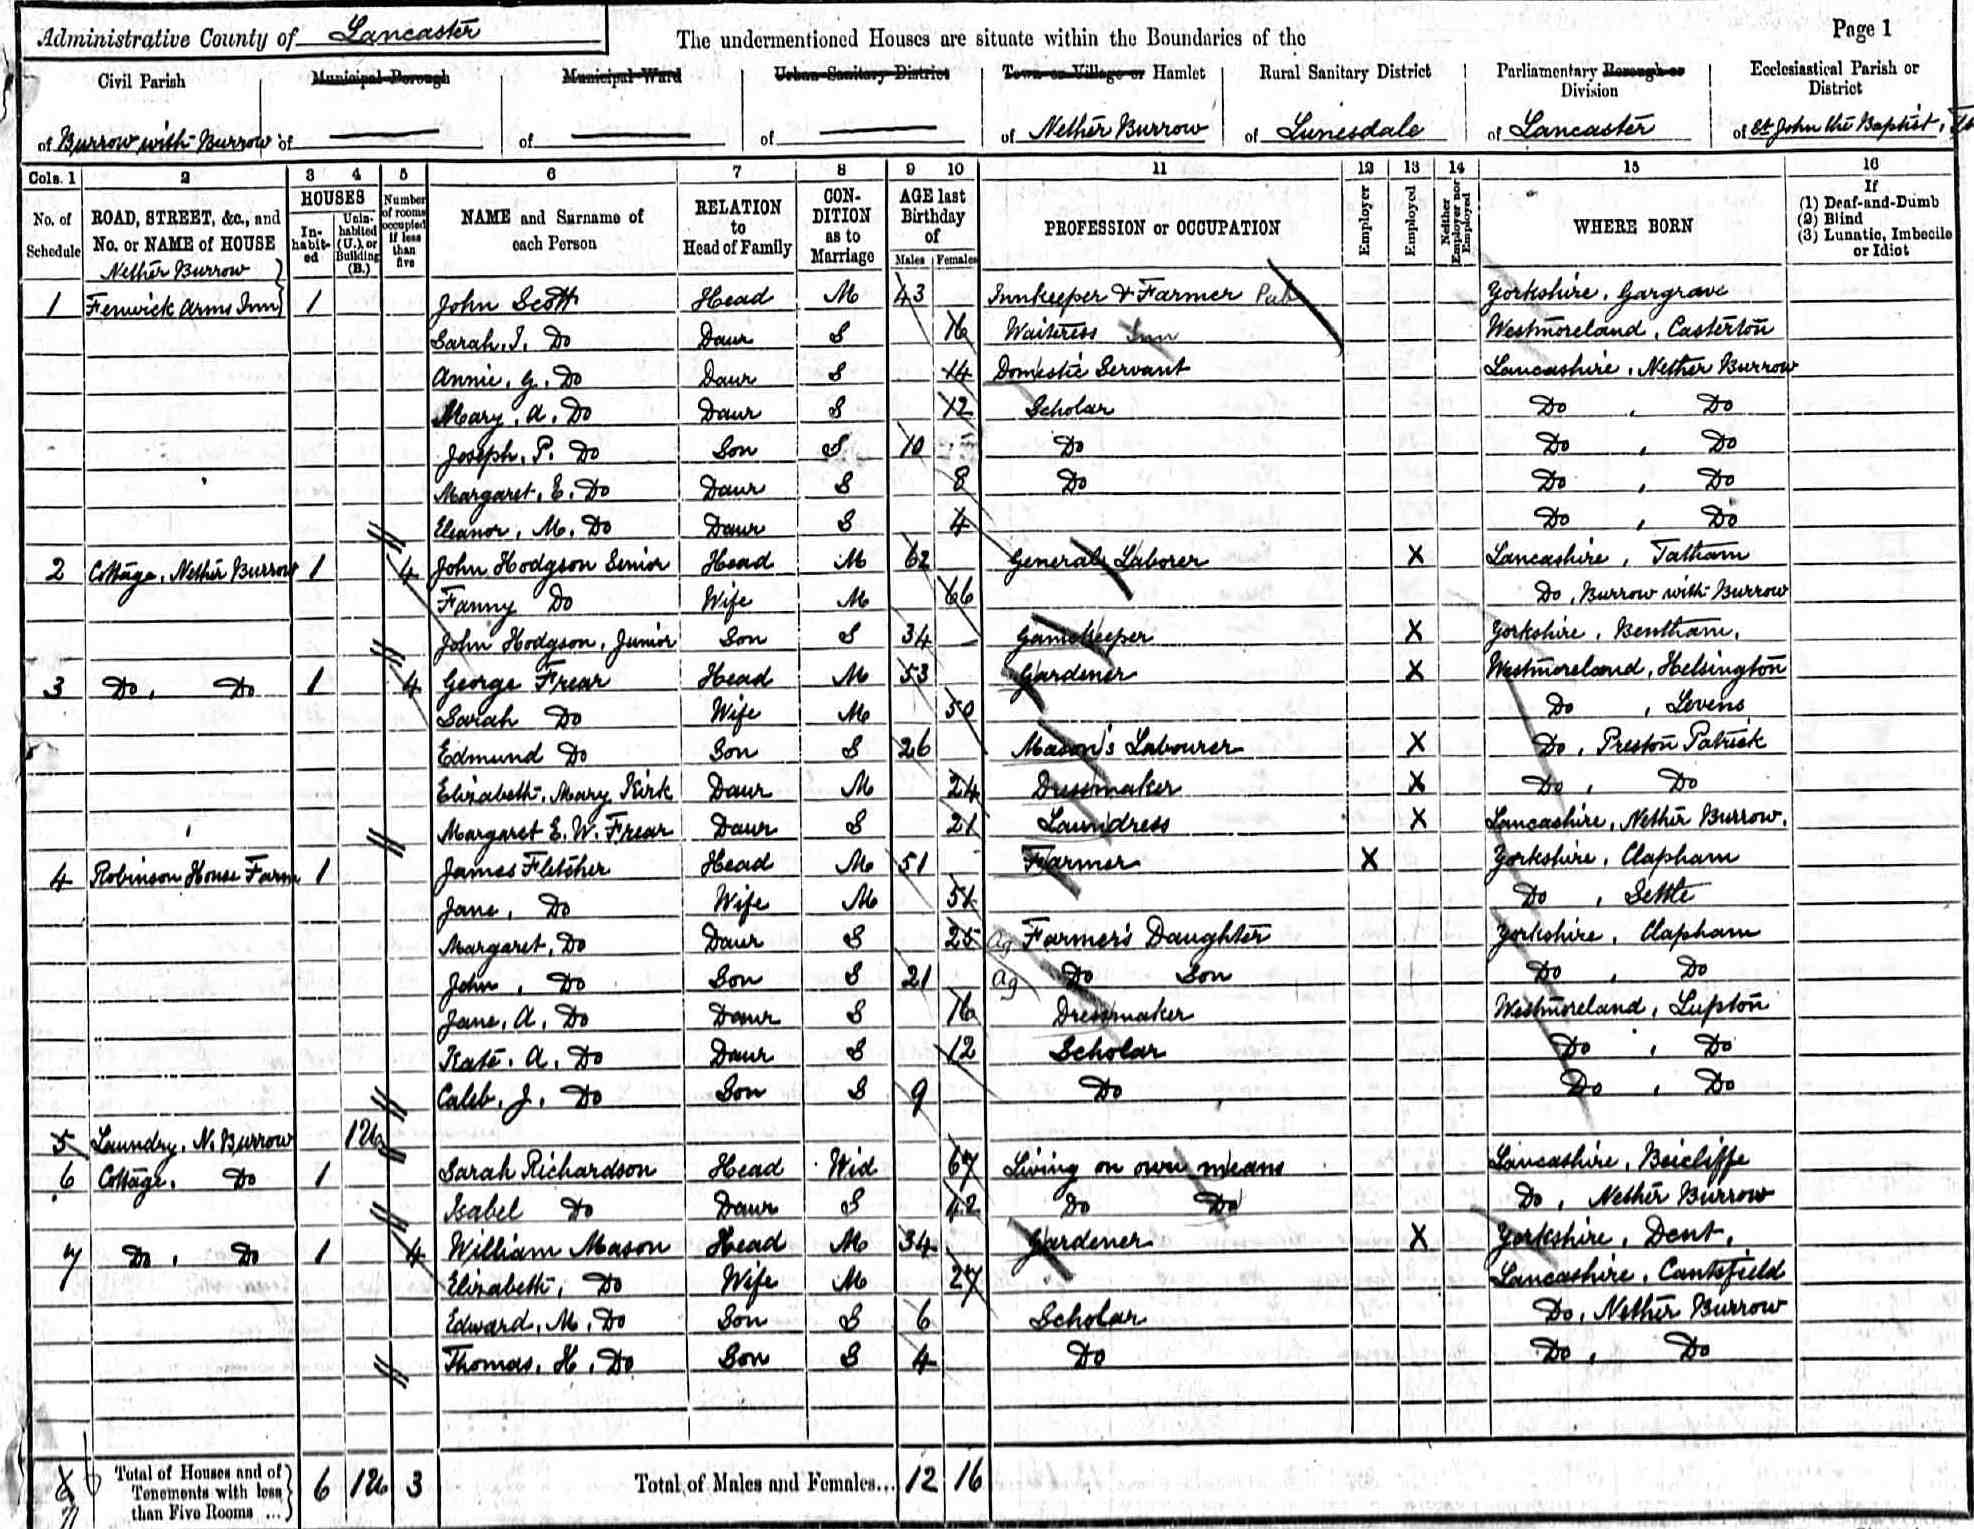 Administrative County of Lancaster
The undermentioned Houses are situate within the Boundaries of the
Page 1
Civil Parish of Burrow with Burrow
Municipal Borough of
Municipal Ward of
Urban Sanitary District of
Town or Village or Hamlet of Nether Burrow
Rural Sanitary District of Lunesdale
Parliamentary Borough or Division of Lancaster
Ecclesiastical Parish or District of St John the Baptist,
Cols. 1 2 3 4 5 6 7 8 9 10 11 12 13 14 15 16
No. of Schedule
ROAD, STREET, &c., and No. or NAME of HOUSE
HOUSES
In-habit-ed
Unin-habited (U.), or Building (B.)
Number of rooms occupied if less than five
NAME and Surname of each Person
RELATION to Head of Family
CON-DITION as to Marriage
AGE last Birthday of
Males Females
PROFESSION or OCCUPATION
Employer
Employed
Neither Employer nor Employed
WHERE BORN
If (1) Deaf-and-Dumb (2) Blind (3) Lunatic, Imbecile or Idiot
Nether Burrow
1 Fenwick Arms Inn 1 John Scott Head M 43 Innkeeper & Farmer Pub Yorkshire, Gargrave
Sarah. I. Do Daur S 16 Waitress Inn Westmoreland, Casterton
Annie. G. Do Daur S 14 Domestic Servant Lancashire, Nether Burrow
Mary. A. Do Daur S 12 Scholar Do , Do
Joseph. P. Do Son S 10 Do Do , Do
Margaret. E. Do Daur S 8 Do Do , Do
Eleanor, M. Do Daur S 4 Do , Do
2 Cottage, Nether Burrow 1 4 John Hodgson Senior Head M 62 General Laborer X Lancashire, Tatham
Fanny Do Wife M 66 Do, Burrow with Burrow
John Hodgson, Junior Son S 34 Gamekeeper X Yorkshire, Bentham.
3 Do, Do 1 4 George Frear Head M 53 Gardener X Westmoreland, Helsington
Sarah Do Wife M 50 Do , Levens
Edmund Do Son S 26 Mason's Labourer X Do, Preston Patrick
Elizabeth. Mary Kirk Daur M 24 Dressmaker X Do , Do
Margaret E. W. Frear Daur S 21 Laundress X Lancashire, Nether Burrow.
4 Robinson House Farm 1 James Fletcher Head M 51 Farmer X Yorkshire, Clapham
Jane, Do Wife M 51 Do , Settle
Margaret, Do Daur S 25 Ag Farmer's Daughter Yorkshire, Clapham
John , Do Son S 21 Ag Do Son Do , Do
Jane, A, Do Daur S 16 Dressmaker Westmoreland, Lupton
Kate. A. Do Daur S 12 Scholar Do , Do
Caleb. J. Do Son S 9 Do Do , Do
5 Laundry, N. Burrow 1U
6 Cottage, Do 1 Sarah Richardson Head Wid 67 Living on own means Lancashire, Beicliffe
Isabel Do Daur S 42 Do Do Do, Nether Burrow
7 Do, Do 1 4 William Mason Head M 34 Gardener X Yorkshire, Dent,
Elizabeth, Do Wife M 27 Lancashire, Cantsfield
Edward, M, Do Son S 6 Scholar Do, Nether Burrow
Thomas, H, Do Son S 4 Do Do , Do
Total of Houses and of Tenements with less than Five Rooms ... 6 1U 3 Total of Males and Females... 12 16